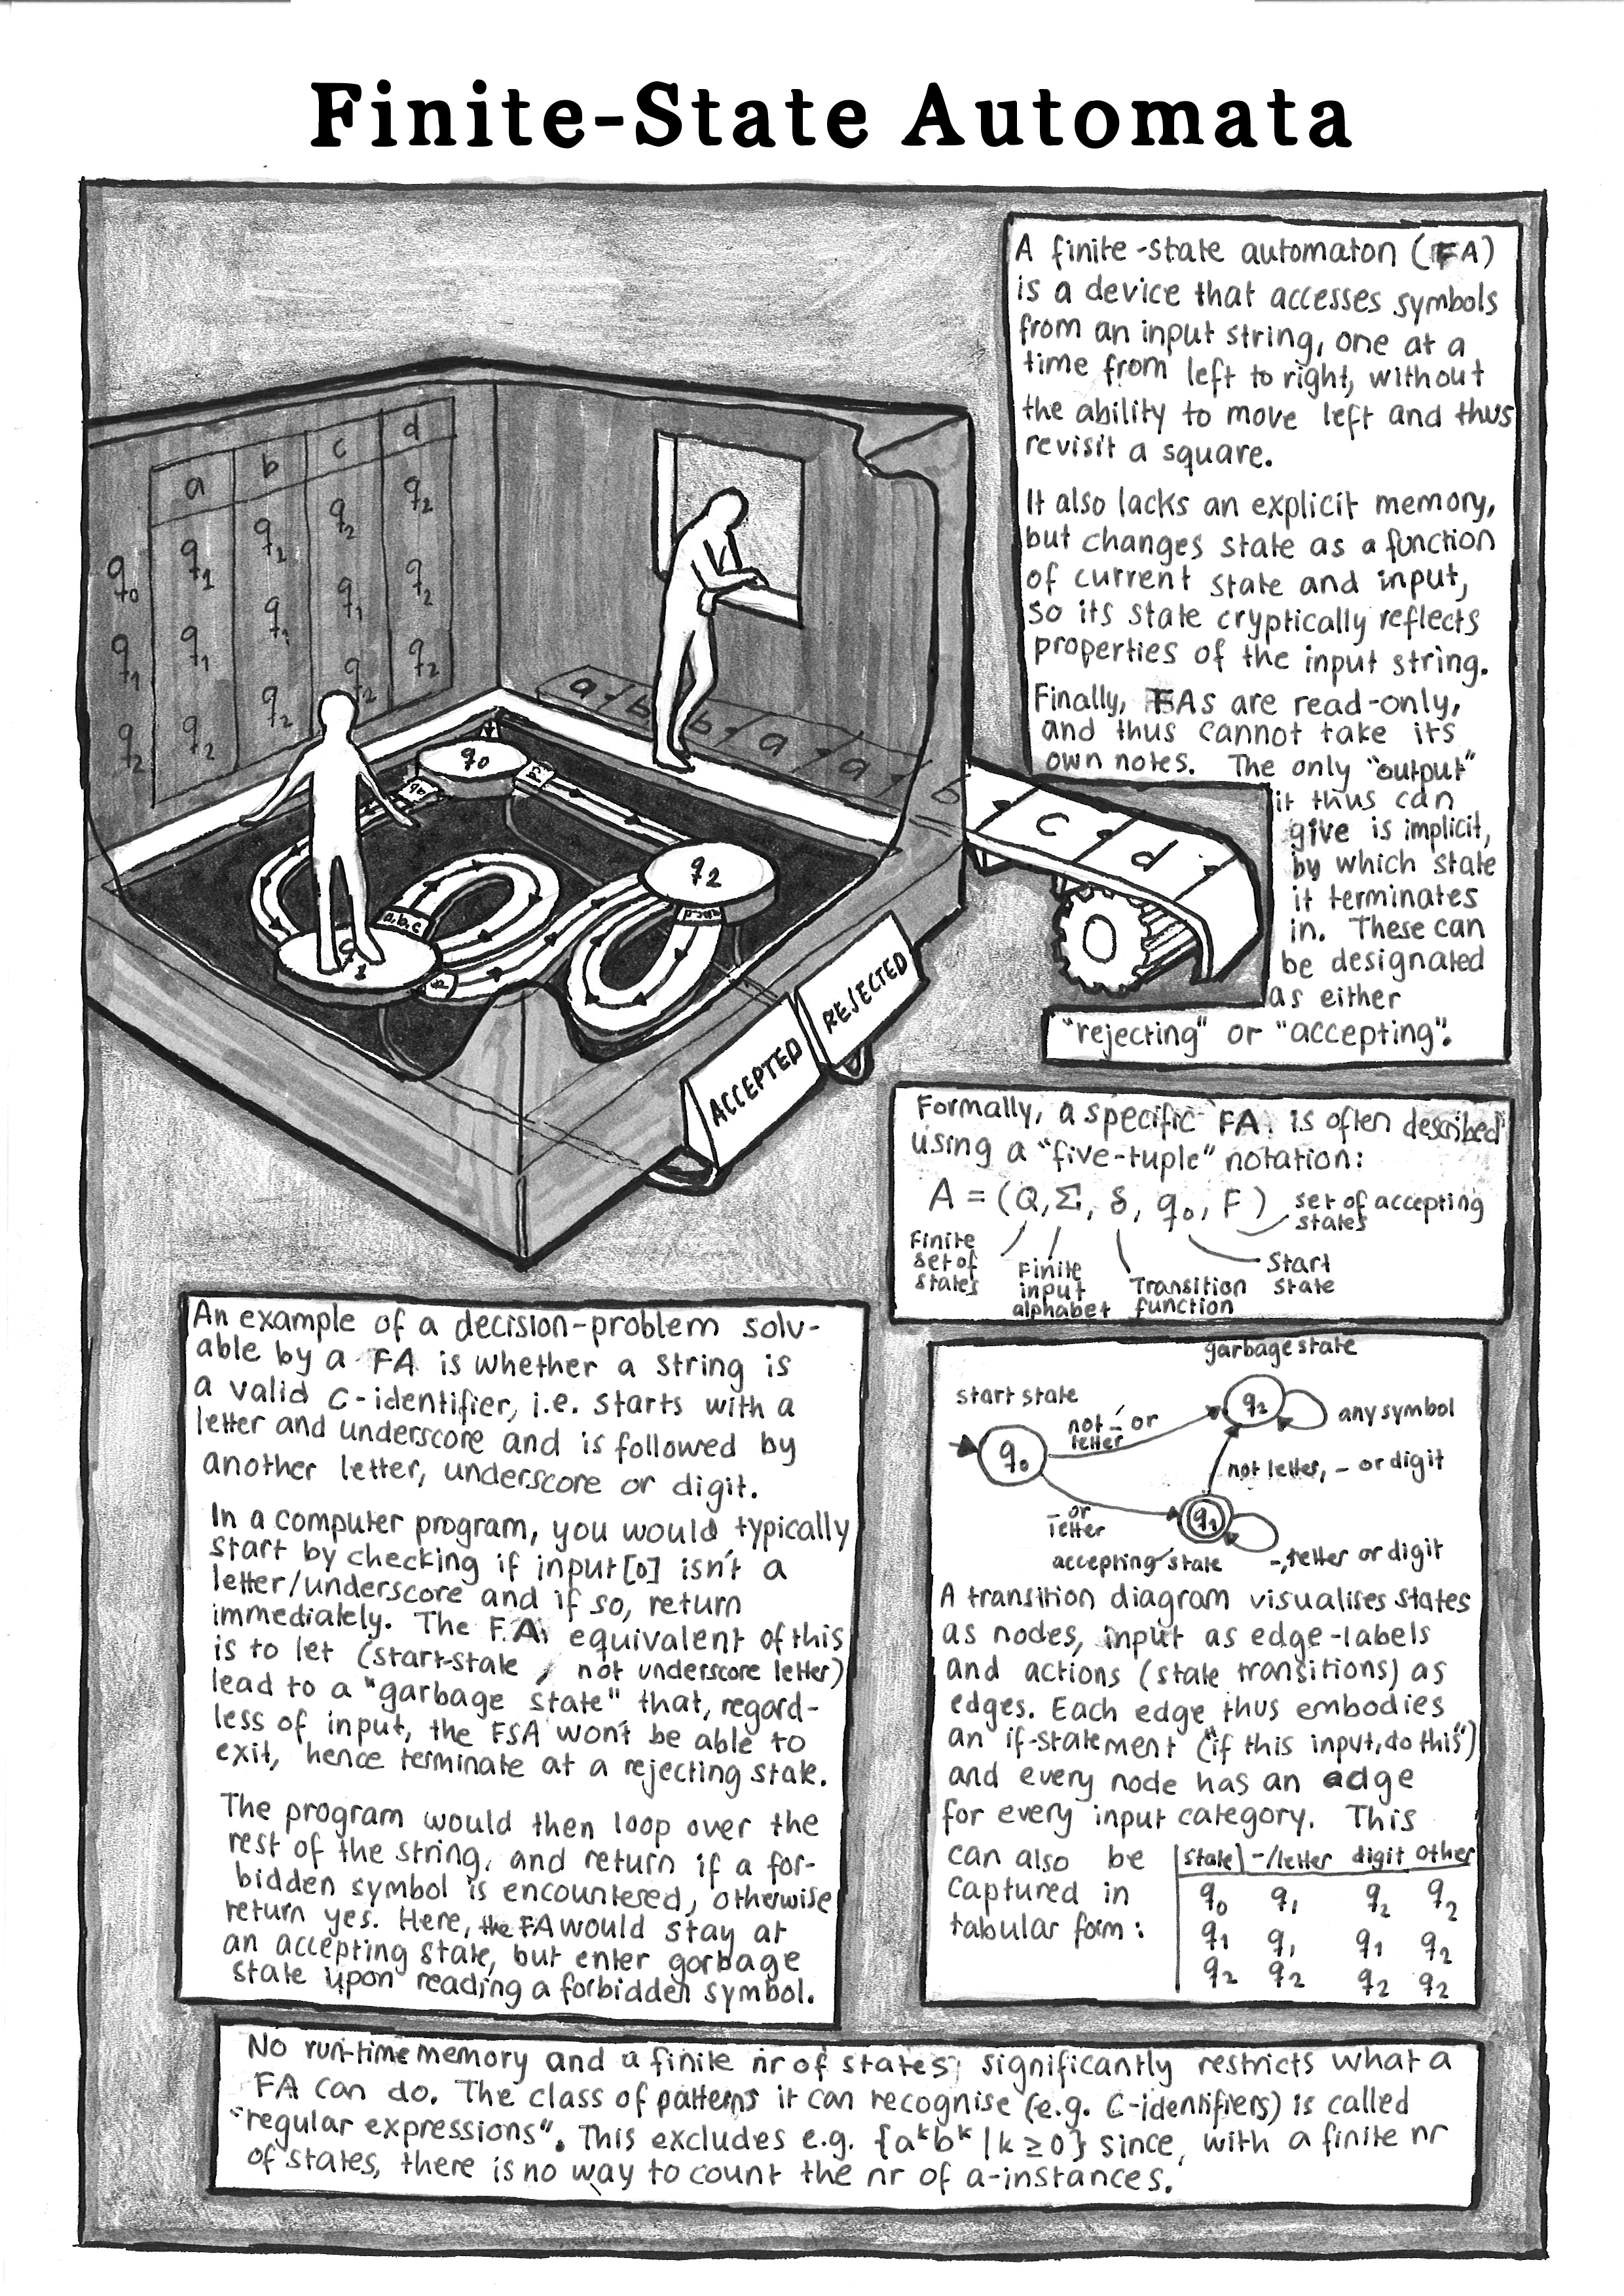 Finite-State Automata
A finite-state automaton (FA)
is a device that accesses symbols
from an input string, one at a
time from left to right, without
the ability to move left and thus
revisit a square.
It also lacks an explicit memory,
but changes state as a function
of current state and input,
so its state cryptically reflects
properties of the input string.
Finally, FAs are read-only,
and thus cannot take its
own notes. The only "output"
it thus can
give is implicit,
by which state
it terminates
in. These can
be designated
as either
"rejecting" or "accepting".
a b c d
q0 q1 q2 q2 q2
q1 q1 q1 q1 q2
q2 q2 q2 q2 q2
a b b a a b c d
q0
q2
a,b,c
q1
ACCEPTED
REJECTED
Formally, a specific FA is often described
using a "five-tuple" notation:
A = (Q, Σ, δ, q0, F)
set of accepting
states
Finite
set of
states
Finite
input
alphabet
Transition
function
Start
state
An example of a decision-problem solv-
able by a FA is whether a string is
a valid C-identifier, i.e. starts with a
letter and underscore and is followed by
another letter, underscore or digit.
In a computer program, you would typically
start by checking if input[0] isn't a
letter/underscore and if so, return
immediately. The FA equivalent of this
is to let (start-state, not underscore letter)
lead to a "garbage state" that, regard-
less of input, the FSA won't be able to
exit, hence terminate at a rejecting state.
The program would then loop over the
rest of the string, and return if a for-
bidden symbol is encountered, otherwise
return yes. Here, the FA would stay at
an accepting state, but enter garbage
state upon reading a forbidden symbol.
garbage state
start state
q2
any symbol
not _ or
letter
q0
not letter, _ or digit
_ or
letter
q1
accepting state
_, letter or digit
A transition diagram visualises states
as nodes, input as edge-labels
and actions (state transitions) as
edges. Each edge thus embodies
an if-statement ("if this input, do this")
and every node has an edge
for every input category. This
can also be
captured in
tabular form:
state _/letter digit other
q0 q1 q2 q2
q1 q1 q1 q2
q2 q2 q2 q2
No run-time memory and a finite nr of states, significantly restricts what a
FA can do. The class of patterns it can recognise (e.g. C-identifiers) is called
"regular expressions". This excludes e.g. {a^k b^k | k ≥ 0} since, with a finite nr
of states, there is no way to count the nr of a-instances.